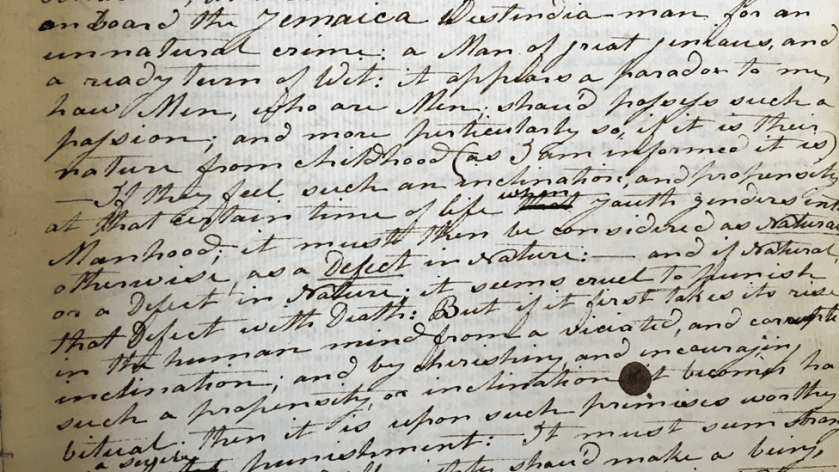 on board the Jemaica Westindia man for an
unnatural crime: a Man of great genious, and
a ready turn of Wit: it appears a paradox to me,
how Men, who are Men, shou'd possess such a
passion; and more perticularly so, if it is their
nature from childhood (as I am informed it is)
— If they feel such an inclination, and propensity
at that certain time of life when youth genders into
Manhood; it must then be considered as Natural
otherwise, as a Defect in Nature: — and if Natural,
or a Defect in Nature; it seems cruel to punish
that Defect with Death: But if it first takes its rise
in the human mind from a viciated, and corrupted
inclination; and by cherishing, and incouraging
such a propensity, or inclination it becomes ha
bitual: then it is upon such primises worthy
a severe punishment: It must seem strange
shou'd make a being,